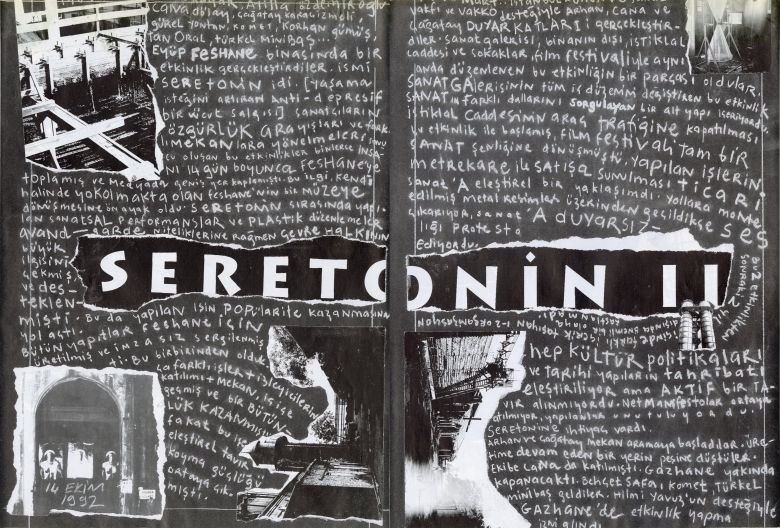 Cana Dölay, Çağatay Karahizmeli,
Gürel Yontan, Komet, Korhan Gümüş,
Tan Oral, Türkel Minibaş
Eyüp FESHANE binasında bir
etkinlik gerçekleştirdiler. ismi
SERETONİN idi. [Yaşama
isteğini artıran anti-depresif
bir vücut salgısı] sanatçıların
ÖZGÜRLÜK ARAyışları ve farklı
MEKANlara yönelmeleri
cu oluşan bu etkinlikler binlerce insa-
nı 14 gün boyunca FESHANEye
toplamış ve medyada geniş yer kaplamıştı. Bu ilgi, kendi
halinde yokolmakta olan Feshane'nin bir MÜZEYE
dönüşmesine önayak oldu. SERETONİN sırasında yapı-
lan sanatsal performanslar ve plastik düzenlemeler
avand-garde niteliklerine rağmen ÇEVRE HALKININ
büyük
ilgisini
çekmiş
ve des-
teklen-
mişti. Bu da yapılan işin POPülarite kazanmasına
yol açtı.
Bütün yapıtlar Feshane için
üretilmiş ve imzasız sergilenmiş
ti. Bu birbirinden olduk-
ça farklı işler + izleyicilerin
katılımı + MEKAN, iç içe
geçmiş ve bir BÜTÜN
LÜK KAZANMIŞTI
fakat bu ise
eleştirel tavır
koyma güçlüğü
ortaya çık
mıştı.
14 EKİM
1992
vakfı ve Vakko desteğiyle Handan, Cana ve
Çağatay DUYARKATLAR'ı gerçekleştir
diler. Sanat galerisi, binanın dışı, istiklal
caddesi ve sokaklar, film festivaliyle aynı
anda düzenlenen bu etkinliğin bir parçası oldular.
SANATGAlerisinin tüm iç düzenini değiştiren bu etkinlik
SANATın farklı dallarını sorgulayan bir alt yapı içeriyordu.
istiklal Caddesinin araç trafiğine kapatılması
bu etkinlik ile başlamış, Film Festivali tam bir
SANAT şenliğine dönüşmüştü. yapılan işlerin
metrekare ile satışa sunulması ticari
sanat 'A eleştirel bir yaklaşımdı. Yollara monte
edilmiş metal resimler üzerinden geçildikçe ses
çıkarıyor, sanat 'A DUYARSIZ
lığı protesto
ediyordu.
SERETONİN II
hep KÜLTÜR politikaları
ve tarihi yapıların tahribatı
eleştiriliyor ama AKTİF bir TA-
VIR alınmıyordu. Net Manifestolar ortaya
atılmıyor, yapılanlar unutuluyordu.
SERETONİNE ihtiyaç vardı.
Arhan ve Çağatay mekan aramaya başladılar. Üre-
time devam eden bir yerin peşine düştüler.
Ekibe Cana da katılmıştı. GAZHANE yakında
kapanacaktı. Behçet Safa, Komet, Türkel
Minibaş geldiler. Hilmi Yavuz'un desteğiyle
GAZHANE'de etkinlik yapma
izni alındı